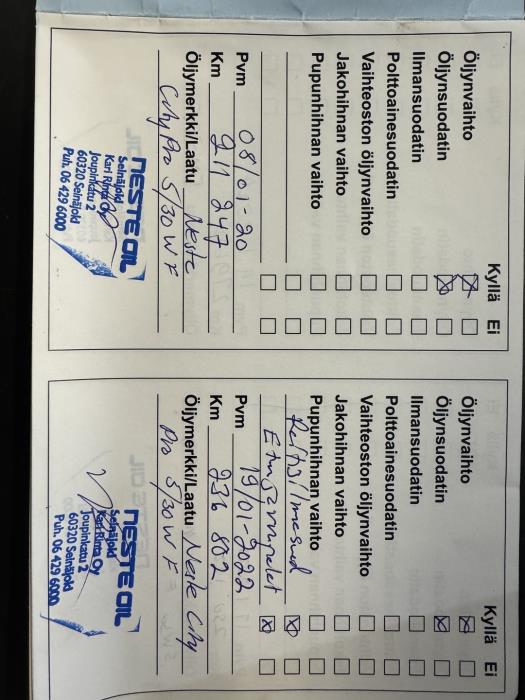 Kyllä Ei
Öljynvaihto ☒ ☐
Öljynsuodatin ☒ ☐
Ilmansuodatin ☐ ☐
Polttoainesuodatin ☐ ☐
Vaihteoston öljynvaihto ☐ ☐
Jakohihnan vaihto ☐ ☐
Pupunhihnan vaihto ☐ ☐
☐ ☐
☐ ☐
Pvm 08/01-20
Km 211 247
Öljymerkki/Laatu Neste
City Pro 5/30W F
NESTE OIL
Seinäjoki
Kari Rima Oy
Joupinkatu 2
60320 Seinäjoki
Puh. 06 429 6000
Kyllä Ei
Öljynvaihto ☒ ☐
Öljynsuodatin ☒ ☐
Ilmansuodatin ☐ ☐
Polttoainesuodatin ☐ ☐
Vaihteoston öljynvaihto ☐ ☐
Jakohihnan vaihto ☐ ☐
Pupunhihnan vaihto ☐ ☐
☒ ☐
☒ ☐
Pvm 19/01-2022
Km 236 802
Öljymerkki/Laatu Neste City
Pro 5/30W F
NESTE OIL
Seinäjoki
Kari Rima Oy
Joupinkatu 2
60320 Seinäjoki
Puh. 06 429 6000